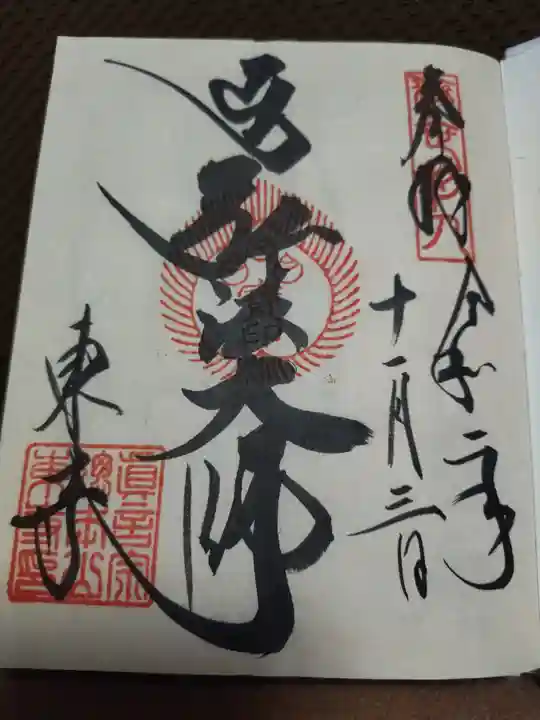 奉拝
令和二年
十一月三日
弘法大師
東寺
真言宗
総本山
東寺印